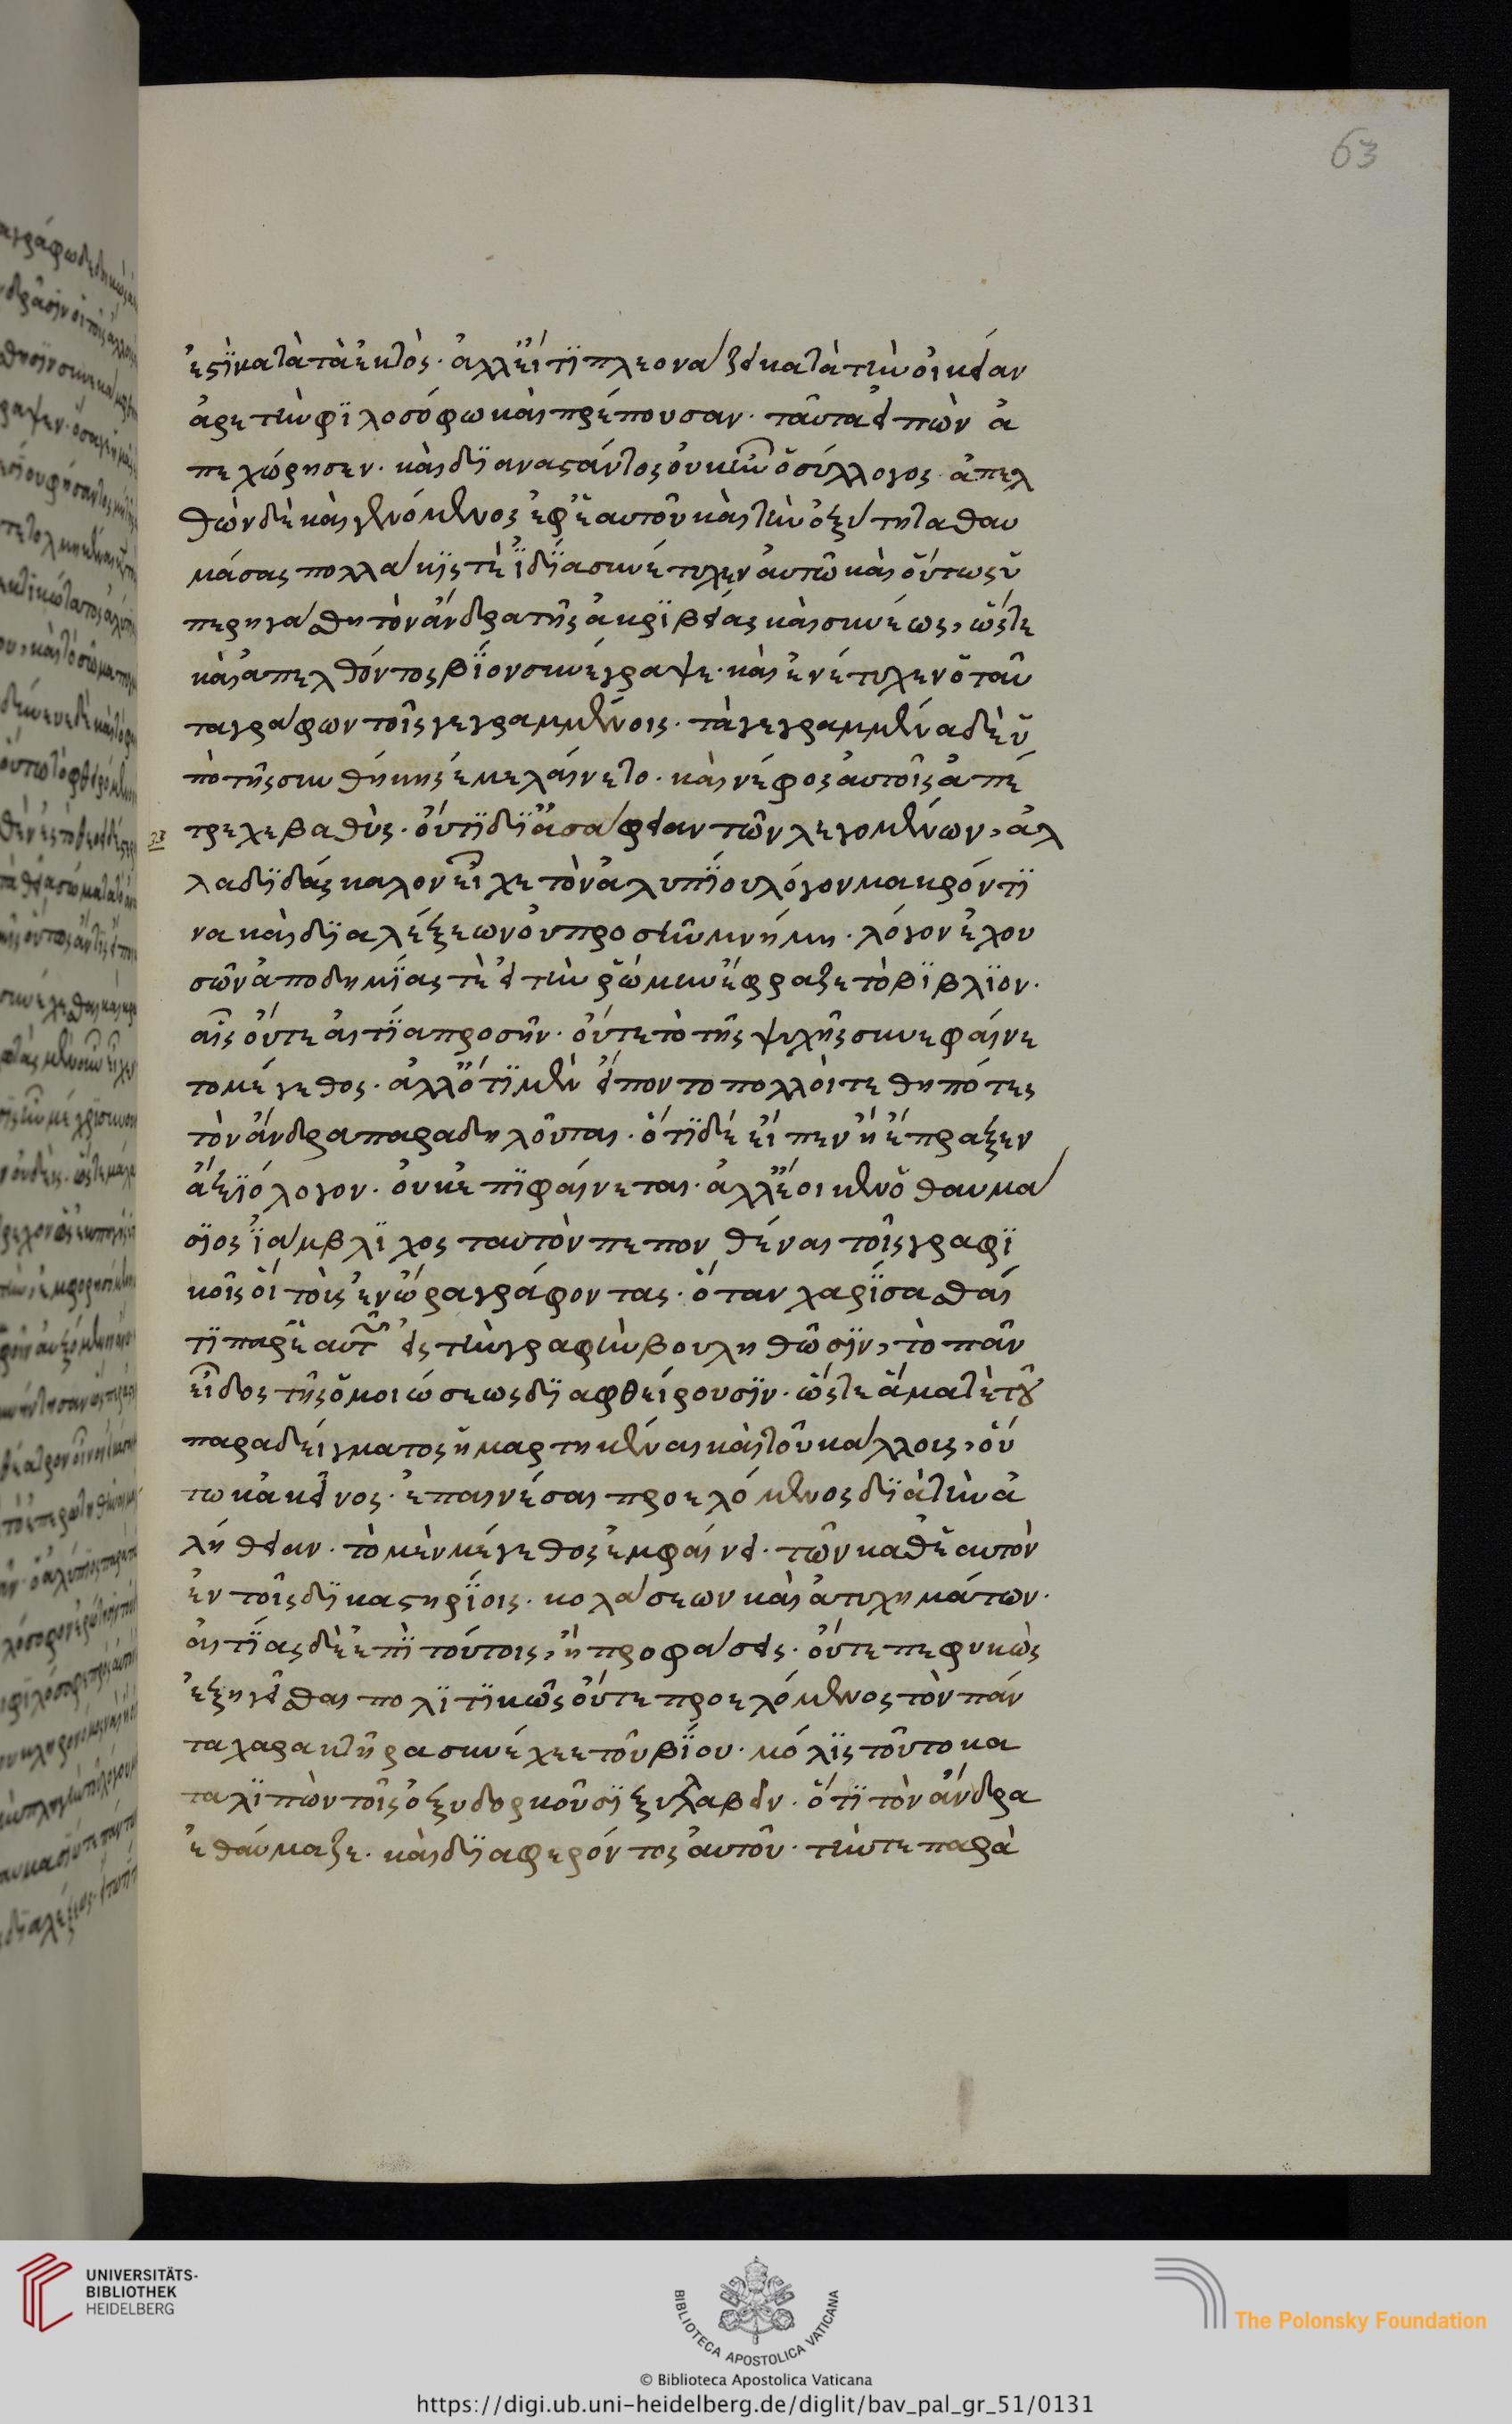 63
ἐστὶ κατὰ τὰ ἐκτὸς· ἀλλ' εἴ τι πλεονάζει κατὰ τὴν οἰκείαν
ἀρετὴν φιλοσόφω καὶ πρέπουσαν· ταῦτα εἰπὼν ἀ
πεχώρησεν· καὶ διαναστάντος οὐκ ἦν ὁ σύλλογος· ἀπελ
θὼν δὲ καὶ γενόμενος ἐφ' ἑαυτοῦ καὶ τὴν ὀξύτητα θαυ
μάσας πολλάκις τὲ ἰδία συνέτυχεν αὐτῶ καὶ οὕτως ὑ
περηγάσθη τὸν ἄνδρα τῆς ἀκριβείας καὶ συνέσεως, ὥστε
καὶ ἀπελθόντος βίον συνέγραψε· καὶ ἐνέτυχεν ὁ ταῦ
τα γράφων τοῖς γεγραμμένοις· τὰ γεγραμμένα δὲ ὑ
πὸ τῆς συνθήκης ἐμελαίνετο· καὶ νέφος αὐτοῖς ἀπέ
τρεχε βαθὺς· οὔτι δι' ἀσάφειαν τῶν λεγομένων, ἀλ
λα διδασκαλον εἶχε τὸν ἀλυπίου λόγον μακρόν τι
να καὶ διαλέξεων οὐ προσῆν μνήμη· λόγον ἐχου
σῶν ἀποδημίας τὲ εἰς τὴν ῥώμην ἔφραζε τὸ βιβλίον·
αἷς οὔτε αἰτία προσῆν· οὔτε τὸ τῆς ψυχῆς συνεφαίνε
το μέγεθος· ἀλλ' ὅτι μὲν εἵποντο πολλοὶ τεθηπότες
τὸν ἄνδρα παραδηλοῦται· ὅτι δέ εἶπεν ἢ ἔπραξεν
ἀξιόλογον· οὐκ ἐπιφαίνεται· ἀλλ' ἔοικεν ὁ θαυμά
σιος ἰάμβλιχος ταυτὸν πεπονθέναι τοῖς γραφι
κοῖς οἳ τοὶς ἐν ὥρα γράφοντας· ὅταν χαρίσασθαί
τι παρ' ἑαυτῶν εἰς τὴν γραφὴν βουληθῶσιν, τὸ πᾶν
εἶδος τῆς ὁμοιώσεως διαφθείρουσιν· ὥστε ἅμα τὲ τοῦ
παραδείγματος ἡμαρτηκέναι καὶ τοῦ κάλλους, οὕ
τω κἀκεῖνος· ἐπαινέσαι προελόμενος διὰ τὴν ἀ
λήθειαν· τὸ μὲν μέγεθος ἐμφαίνει· τῶν καθ' ἑαυτὸν
ἐν τοῖς δικαστηρίοις· κολάσεων καὶ ἀτυχημάτων·
αἰτίας δὲ ἐπὶ τούτοις, ἢ προφάσεις· οὔτε πεφυκὼς
ἐξηγεῖσθαι πολιτικῶς οὔτε προελόμενος τὸν πάν
τα χαρακτῆρα συνέχεε τοῦ βίου· μόλις τοῦτο κα
ταλιπὼν τοῖς ὀξυδορκοῦσι ξυλλαβεῖν· ὅτι τὸν ἄνδρα
ἐθαύμαζε· καὶ διαφερόντος αὐτοῦ· τήν τε παρὰ
UNIVERSITÄTS-
BIBLIOTHEK
HEIDELBERG
BIBLIOTECA APOSTOLICA VATICANA
The Polonsky Foundation
© Biblioteca Apostolica Vaticana
https://digi.ub.uni-heidelberg.de/diglit/bav_pal_gr_51/0131